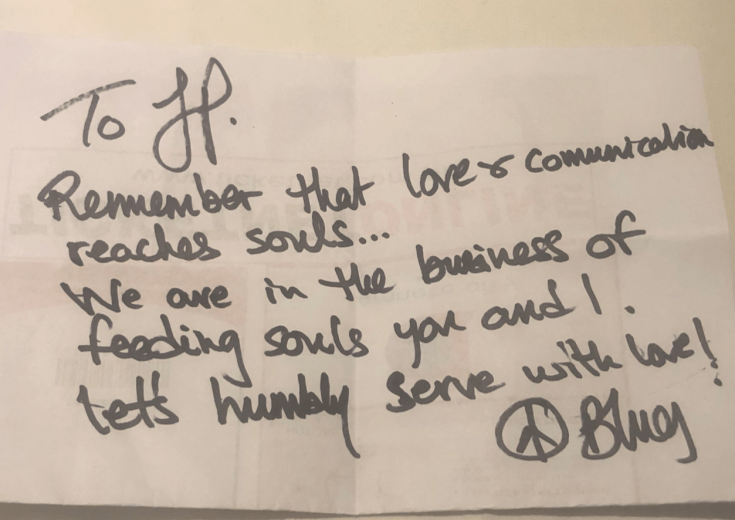 To JP.
Remember that love & comunication
reaches souls...
We are in the business of
feeding souls you and I.
Let's humbly serve with love!
Blues